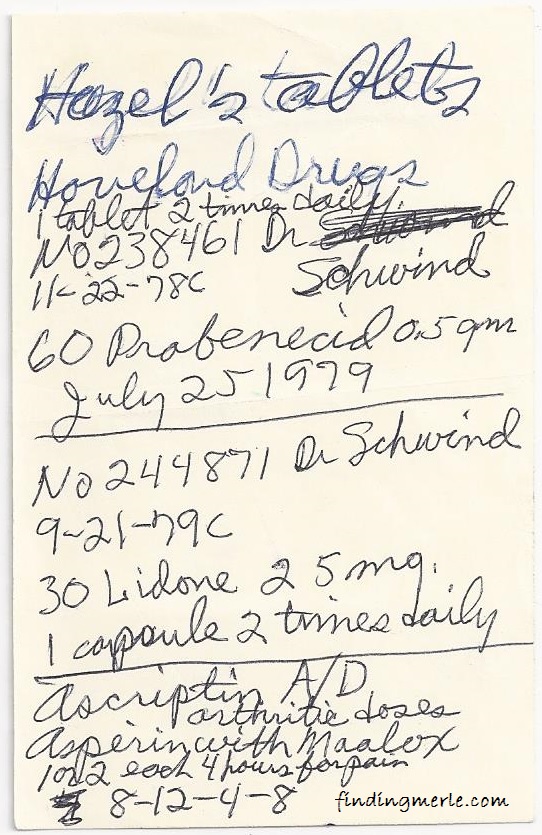 Hazel's tablets
Hoveland Drugs
1 tablet 2 times daily
No 238461 Dr
11-22-78C Schwind
60 Probenecid 0.5 gm
July 25 1979
No 244871 Dr Schwind
9-21-79C
30 Lidone 25 mg.
1 capsule 2 times daily
Ascriptin A/D
arthritic doses
Asperin with Maalox
1 or 2 each 4 hours for pain
8-12-4-8
findingmerle.com